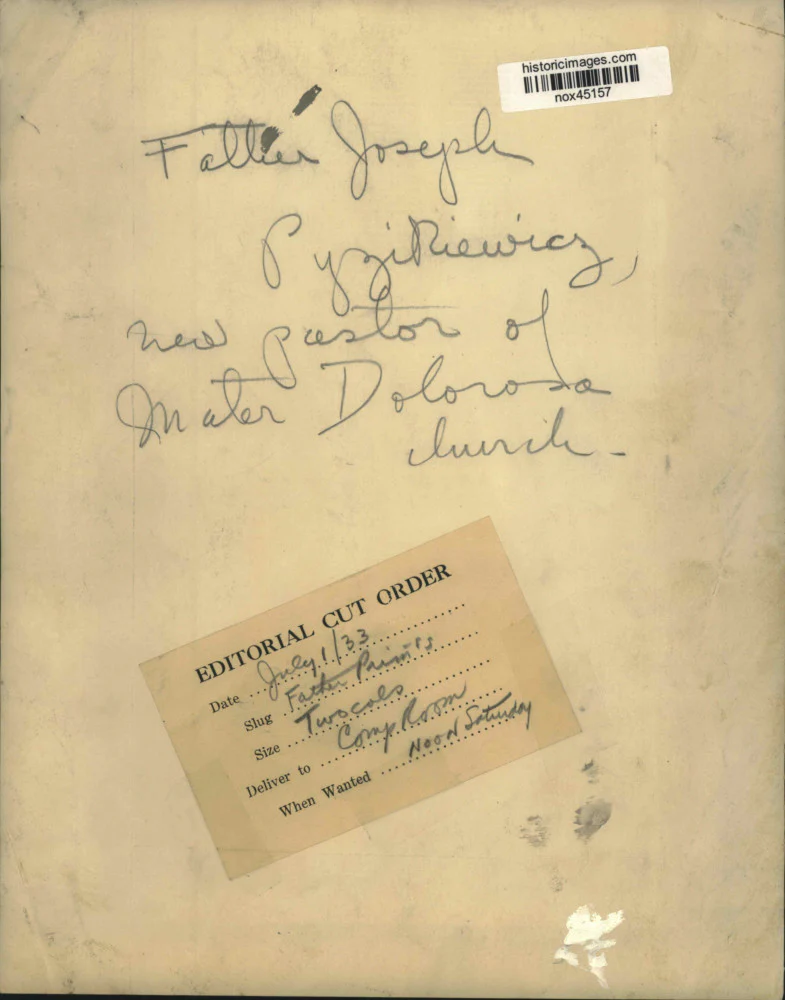 historicimages.com
nox45157
Father Joseph
Pyzikiewicz,
new pastor of
Mater Dolorosa
church -
EDITORIAL CUT ORDER
Date July 1/33
Slug Father
Size Two cols
Deliver to Comp Room
When Wanted Noon Saturday